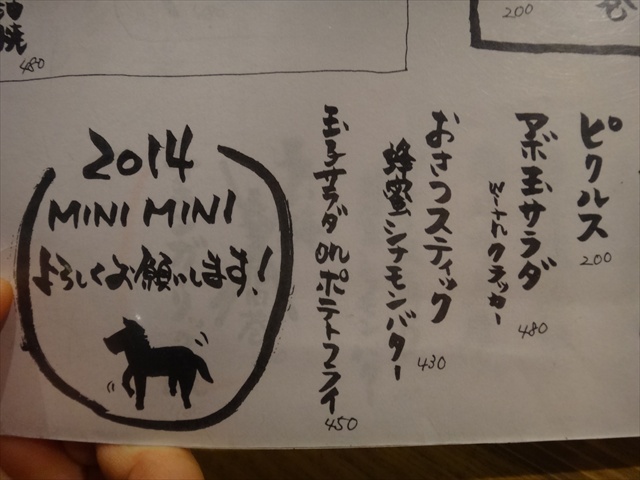 200
ピクルス
200
アボ玉サラダ
withクラッカー
480
おさつスティック
蜂蜜シナモンバター
430
玉子サラダ on ポテトフライ
450
焼
480
2014
MINI MINI
よろしくお願いします!